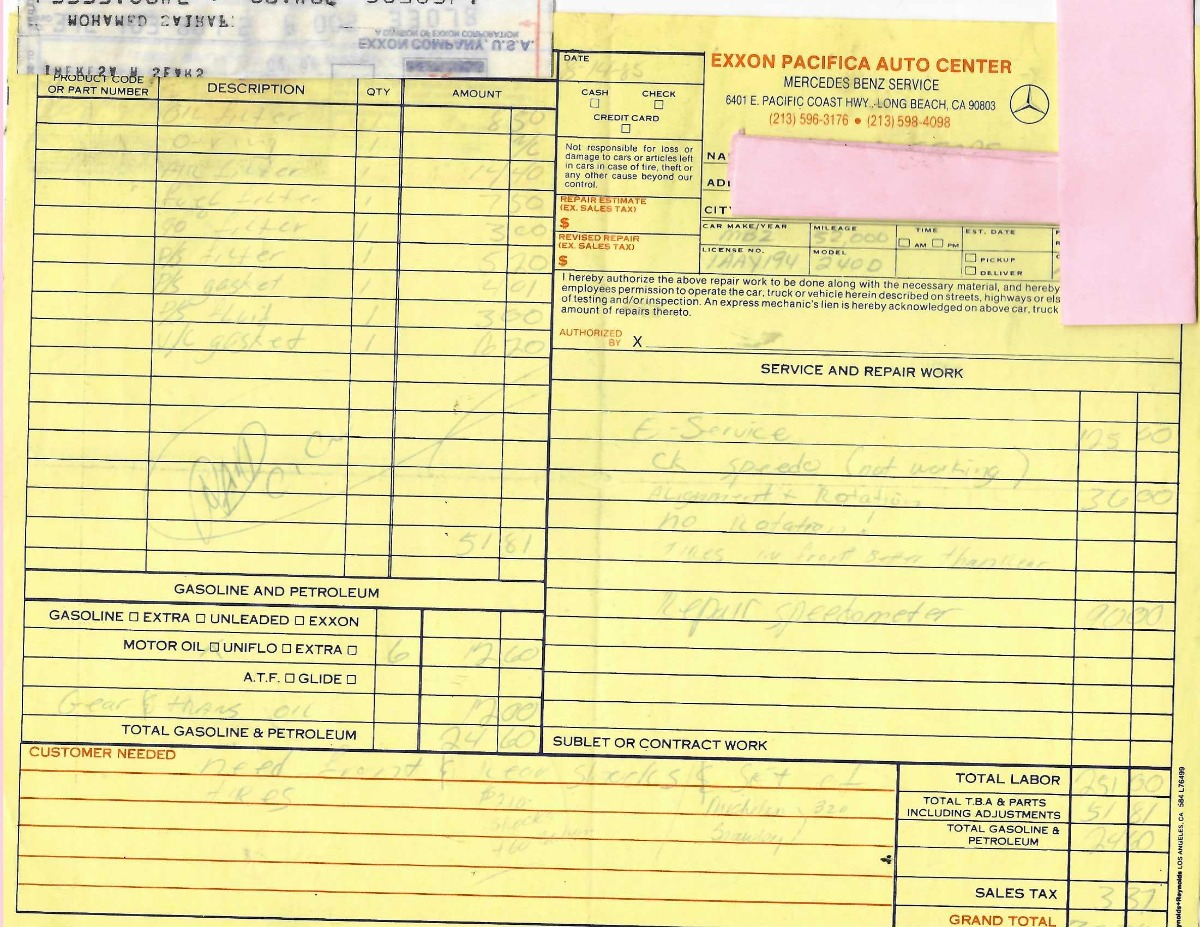 MOHAMED
A DIVISION OF EXXON CORPORATION
EXXON COMPANY, U.S.A.
PRODUCT CODE OR PART NUMBER
DESCRIPTION
QTY
AMOUNT
Oil filter 1 8 50
O ring 1
Air filter 1 14 40
Fuel filter 1 7 50
go filter 1 3 00
P/S filter 1 5 20
P/S gasket 1 4 01
P/S fluid 1 3 00
V/C gasket 1 20
51 81
GASOLINE AND PETROLEUM
GASOLINE □ EXTRA □ UNLEADED □ EXXON
MOTOR OIL □ UNIFLO □ EXTRA □ 6 12 60
A.T.F. □ GLIDE □
Gear & trans oil 12 00
TOTAL GASOLINE & PETROLEUM 24 60
DATE
14-85
CASH □ CHECK □
CREDIT CARD □
Not responsible for loss or
damage to cars or articles left
in cars in case of fire, theft or
any other cause beyond our
control.
REPAIR ESTIMATE
(EX. SALES TAX)
$
REVISED REPAIR
(EX. SALES TAX)
$
EXXON PACIFICA AUTO CENTER
MERCEDES BENZ SERVICE
6401 E. PACIFIC COAST HWY., LONG BEACH, CA 90803
(213) 596-3176 • (213) 598-4098
CITY
CAR MAKE/YEAR MBZ
MILEAGE 52,000
TIME □ AM □ PM
EST. DATE
□ PICKUP
□ DELIVER
LICENSE NO. 1AAY194
MODEL 240D
I hereby authorize the above repair work to be done along with the necessary material, and hereby
employees permission to operate the car, truck or vehicle herein described on streets, highways or els
of testing and/or inspection. An express mechanic's lien is hereby acknowledged on above car, truck
amount of repairs thereto.
AUTHORIZED
BY X
SERVICE AND REPAIR WORK
E-Service 125 00
CK speedo (not working)
Alignment + Rotation 36 00
no Rotation!
Tires in front Better than rear
Repair speedometer 90 00
SUBLET OR CONTRACT WORK
CUSTOMER NEEDED
need front & Rear shocks & set of
tires
$210
shocks
Michelin 320
TOTAL LABOR 251 00
TOTAL T.B.A & PARTS
INCLUDING ADJUSTMENTS 51 81
TOTAL GASOLINE &
PETROLEUM 24 60
SALES TAX 3 37
GRAND TOTAL
LOS ANGELES, CA 584 L76499